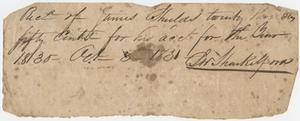 Recd of James Shields twenty
fifty Cents for his acct for the Year
1830 Oct 8 1831
Shackelford